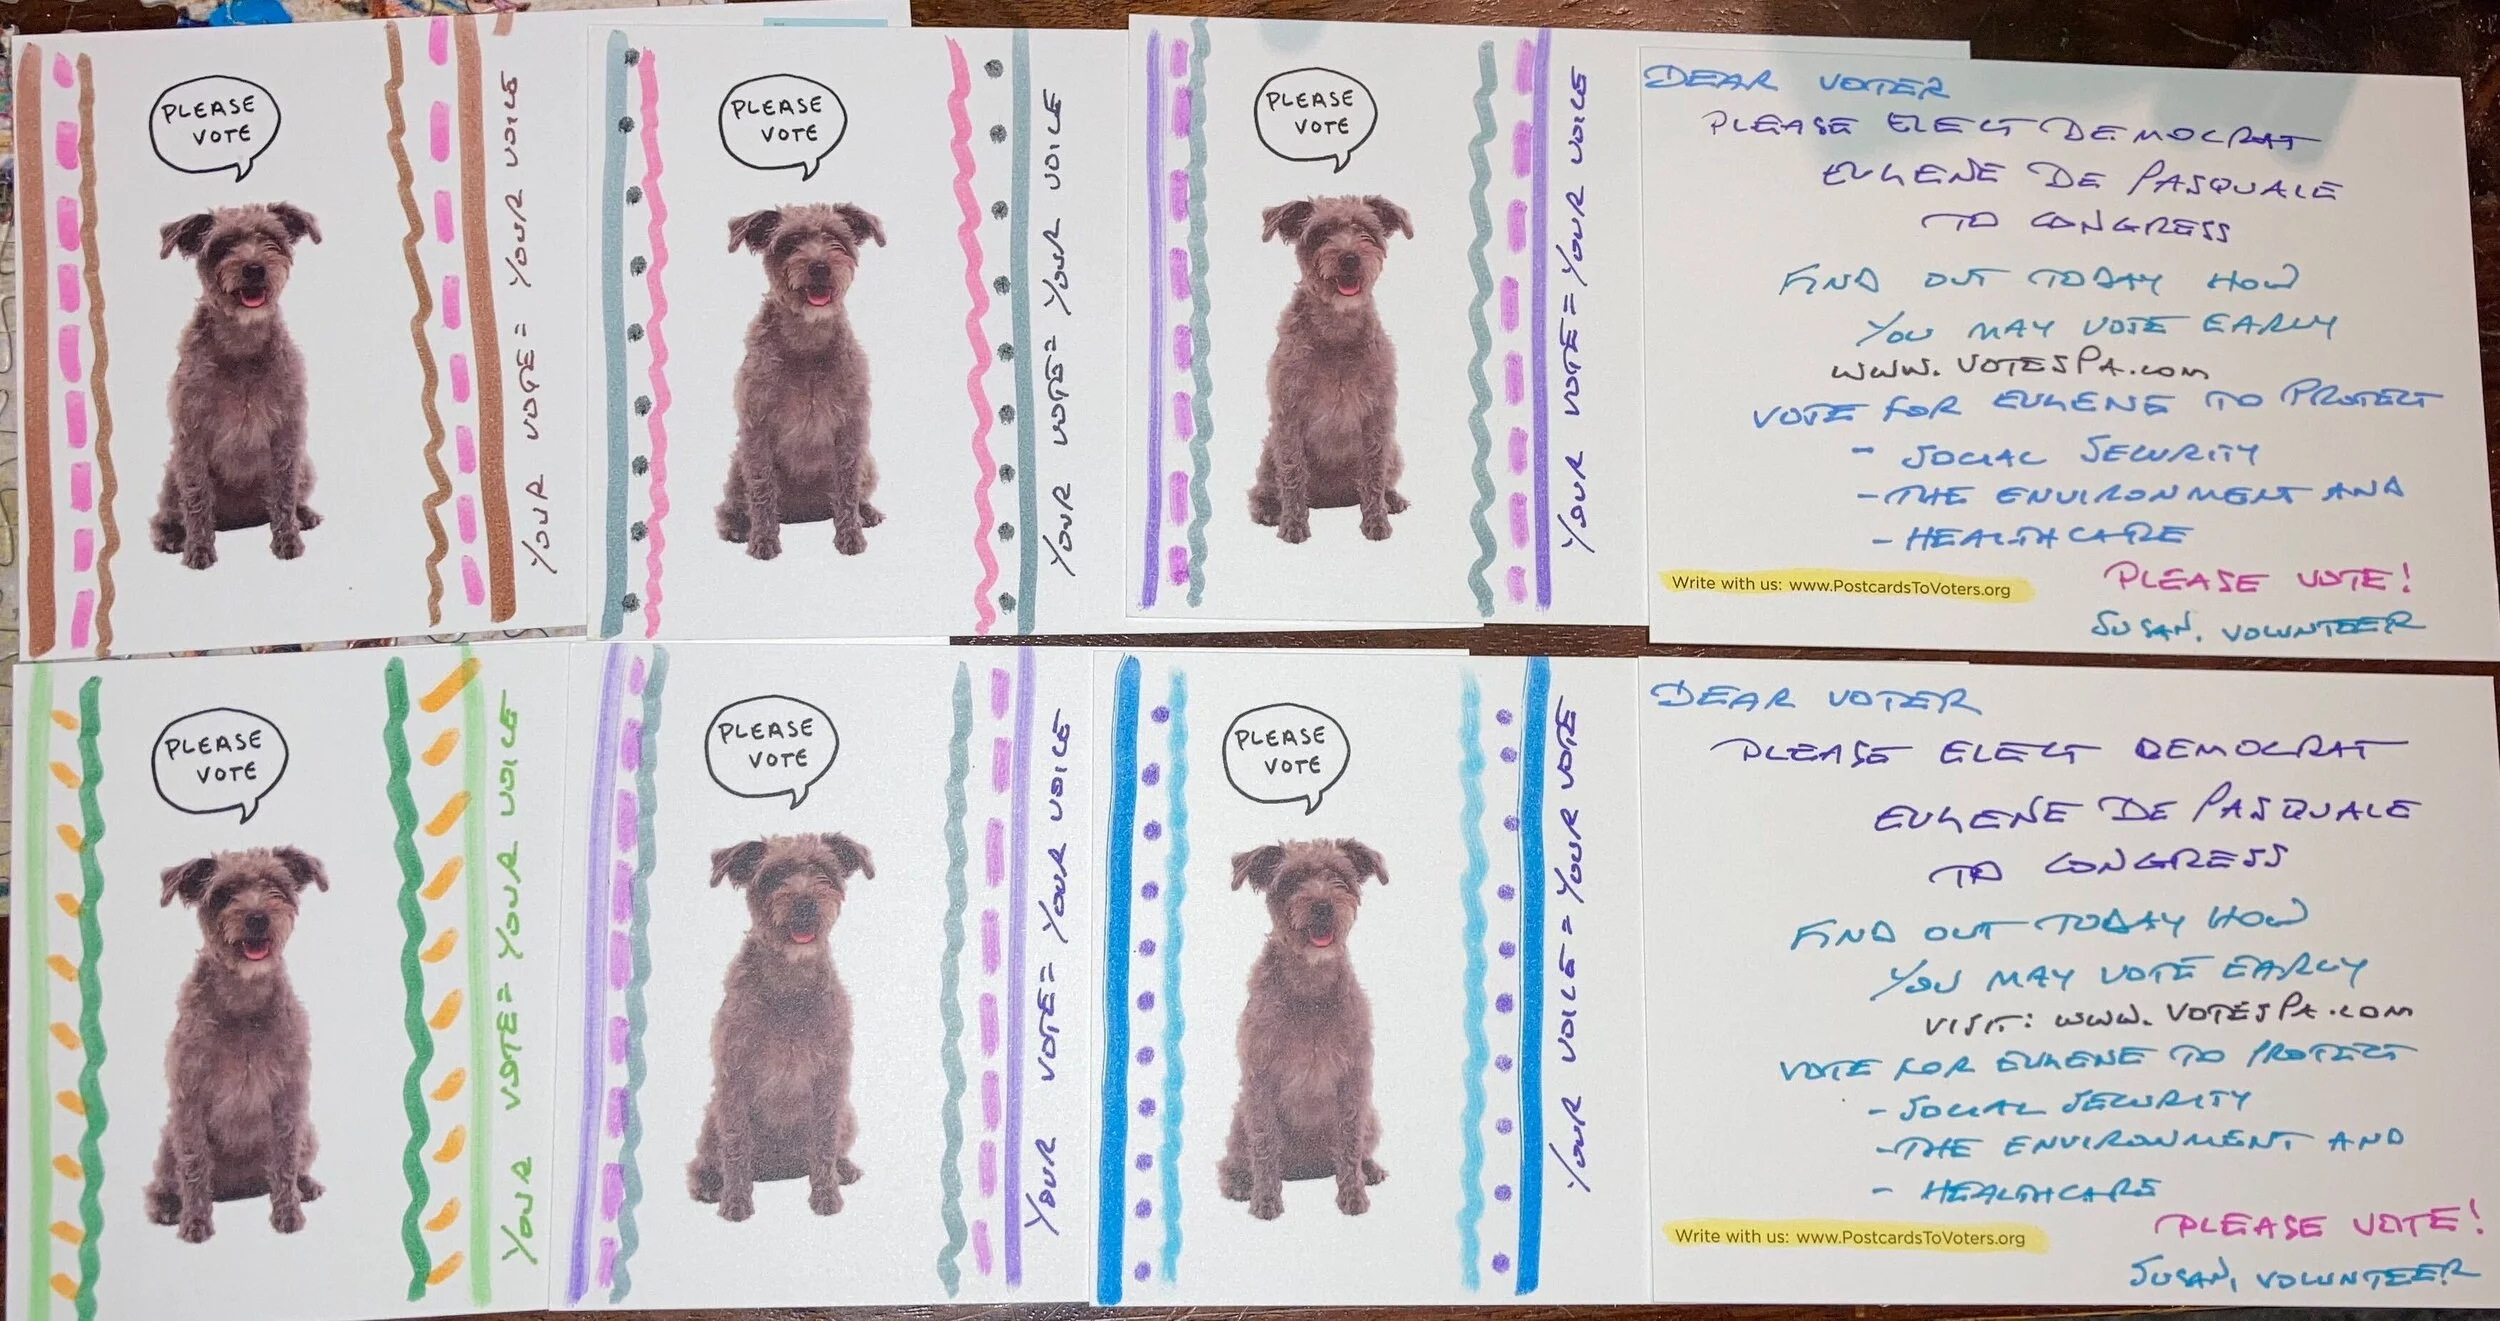 PLEASE
VOTE
YOUR VOTE = YOUR VOICE
PLEASE
VOTE
YOUR VOTE = YOUR VOICE
PLEASE
VOTE
YOUR VOTE = YOUR VOICE
DEAR VOTER
PLEASE ELECT DEMOCRAT
EUGENE DE PASQUALE
TO CONGRESS
FIND OUT TODAY HOW
YOU MAY VOTE EARLY
WWW.VOTESPA.COM
VOTE FOR EUGENE TO PROTECT
- SOCIAL SECURITY
- THE ENVIRONMENT AND
- HEALTHCARE
Write with us: www.PostcardsToVoters.org
PLEASE VOTE!
SUSAN, VOLUNTEER
PLEASE
VOTE
YOUR VOTE = YOUR VOICE
PLEASE
VOTE
YOUR VOTE = YOUR VOICE
PLEASE
VOTE
YOUR VOICE = YOUR VOTE
DEAR VOTER
PLEASE ELECT DEMOCRAT
EUGENE DE PASQUALE
TO CONGRESS
FIND OUT TODAY HOW
YOU MAY VOTE EARLY
VISIT: WWW.VOTESPA.COM
VOTE FOR EUGENE TO PROTECT
- SOCIAL SECURITY
- THE ENVIRONMENT AND
- HEALTHCARE
Write with us: www.PostcardsToVoters.org
PLEASE VOTE!
SUSAN, VOLUNTEER